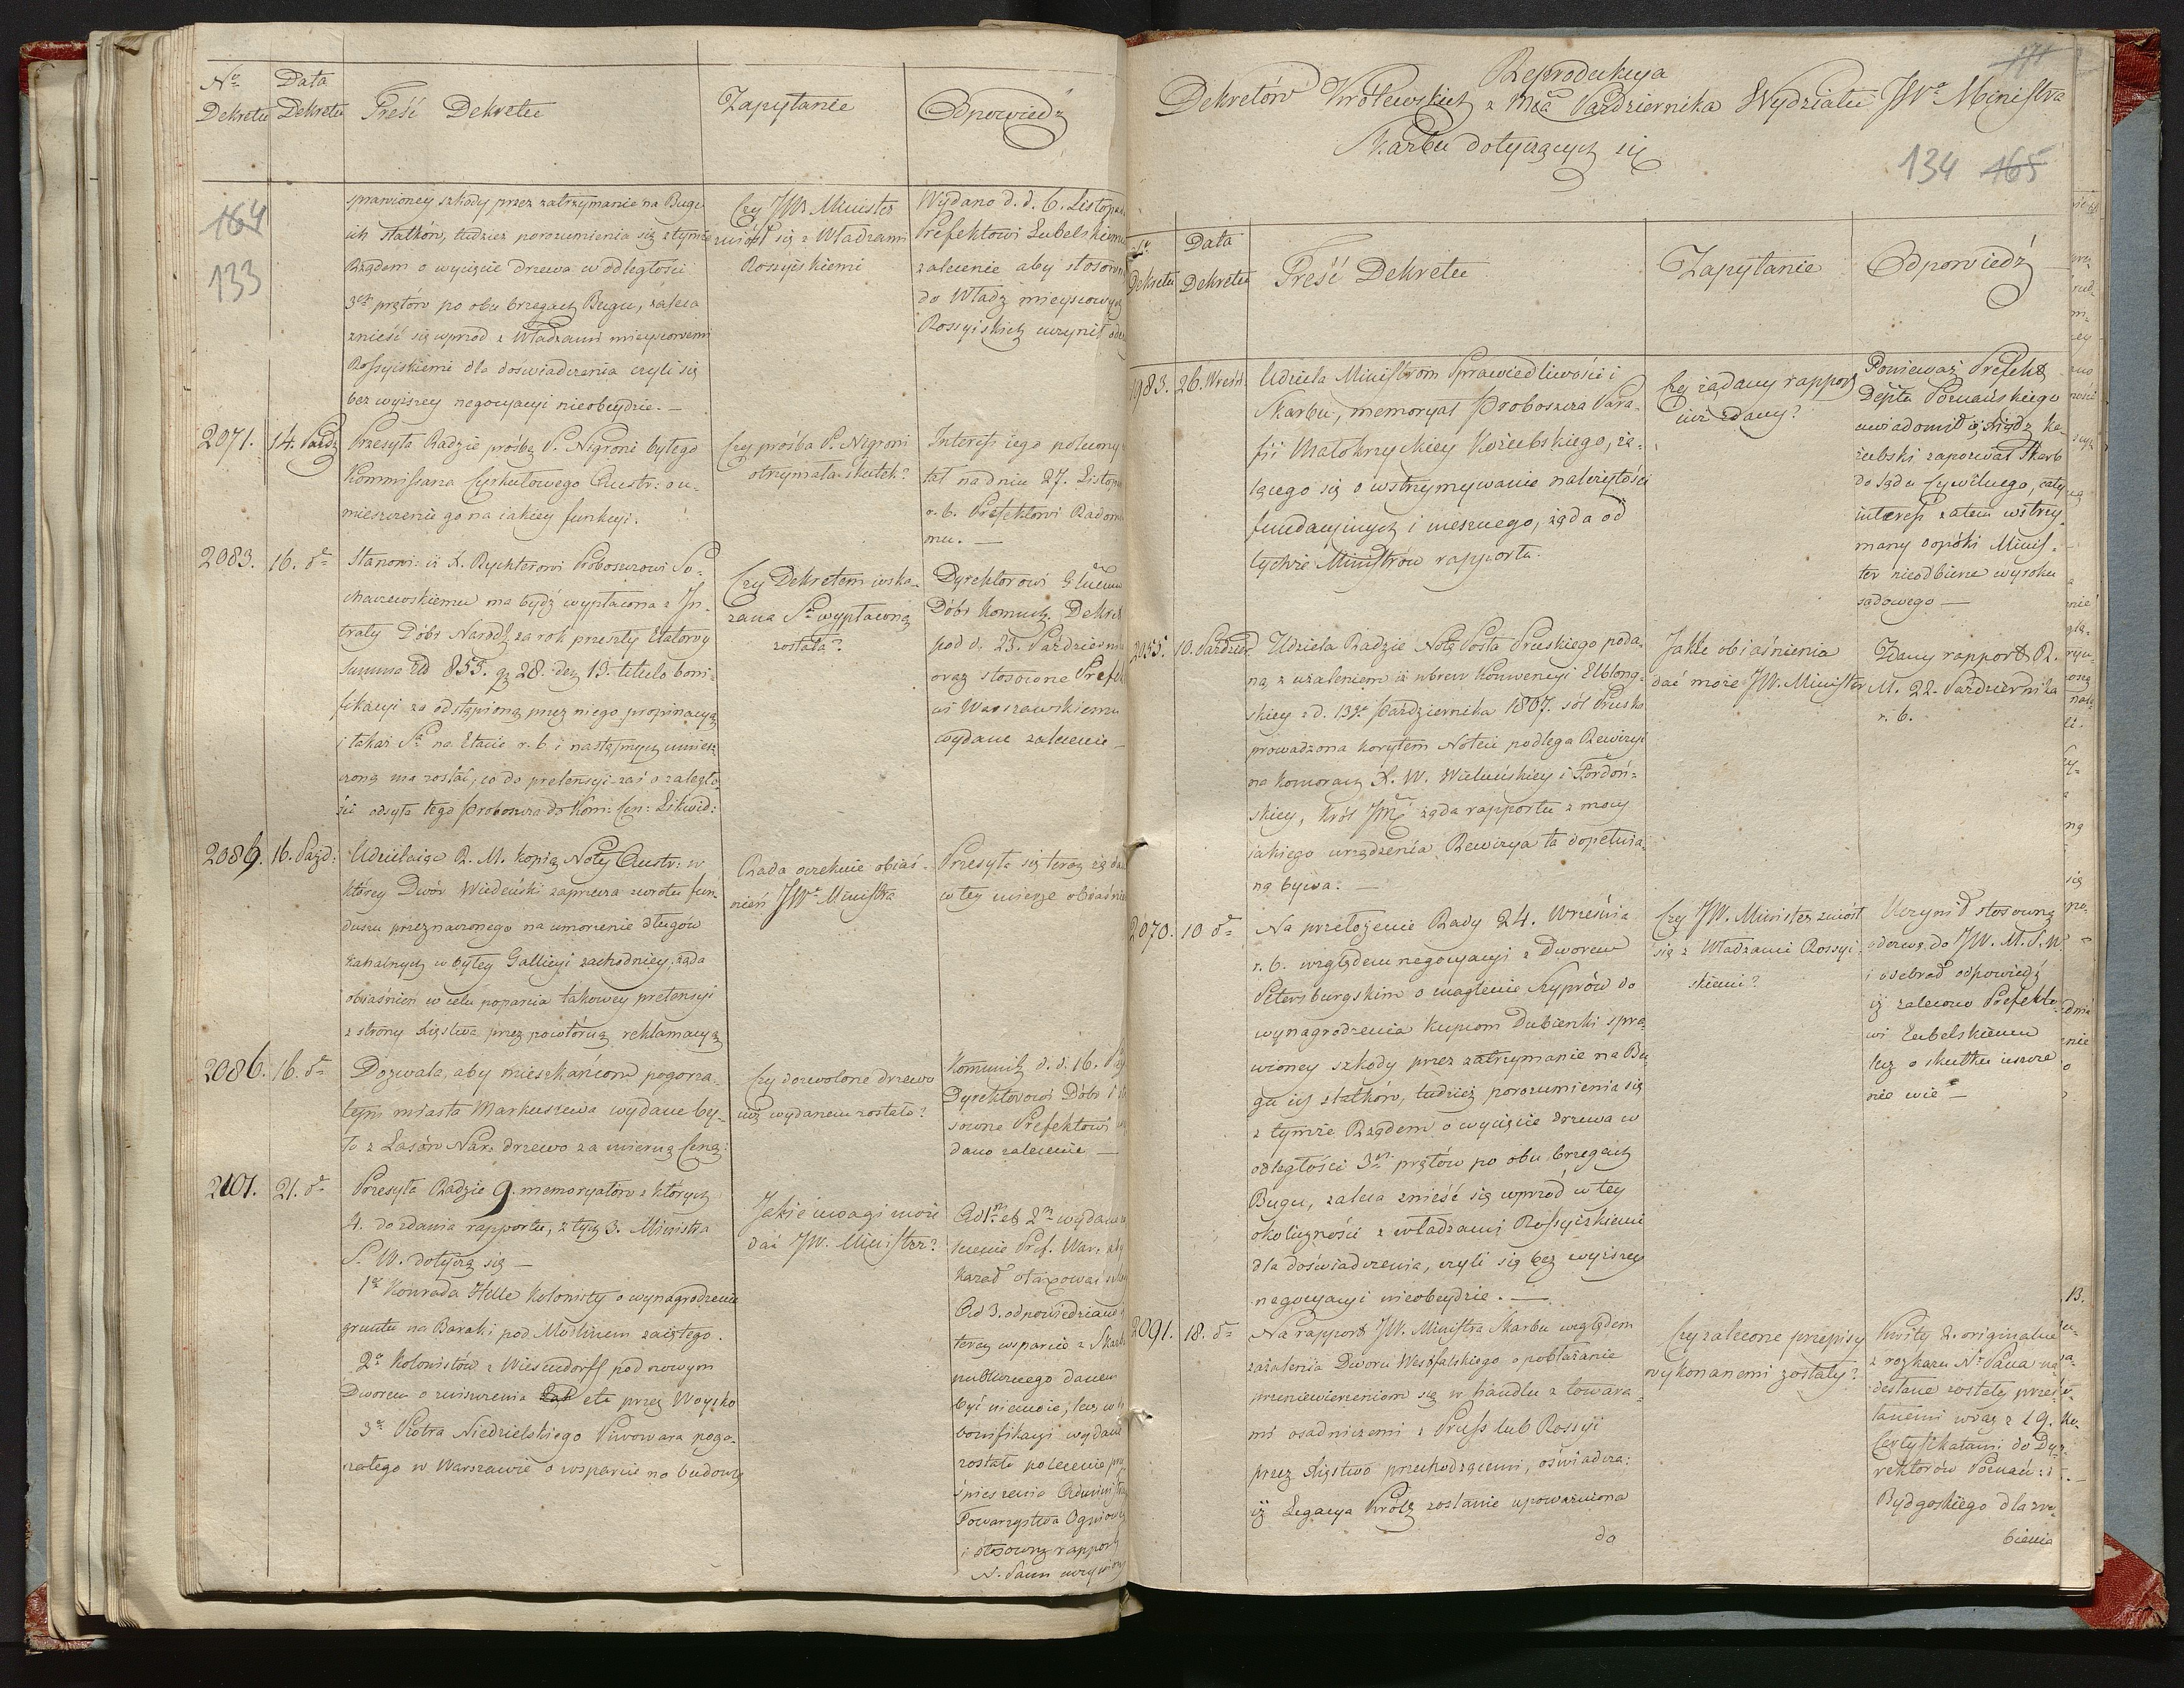 No Data
Dekretu Dekretu Treść Dekretu Zapytanie Odpowiedź
164
133
sprawioney szkody przez zatrzymanie na Bugu
ich statków, tudzież porozumienia się z tymże
Rządem o wycięcie drzewa w odległości
3ch prętów po obu brzegach Bugu, zaleca
znieść się wprzód z Władzami mieyscowemi
Rossyiskiemi dla doświadczenia czyli się
bez wyższey negocyacyi nieobeydzie. —
Czy JW. Minister
zniósł się z Władzami
Rossyiskiemi
Wydano d. d. 6. Listopad
Prefektowi Lubelskiemu
zalecenie aby stosown
do Władz mieyscowych
Rossyiskich uczynił ode
2071. 14. Paźdz
Przesyła Radzie prośbę P. Nigroni byłego
Kommissarza Cyrkułowego Austr: o u-
mieszczenie go na iakiey funkcyi.
Czy prośba P. Nigroni
otrzymała skutek?
Interess iego polecony
tał na dniu 27. Listopa
r. b. Prefektowi Radom
mu. —
2083. 16. do
Stanowi iż X. Rychterowi Proboszczowi So-
chaczewskiemu ma bydź wypłacona z In-
traty Dóbr Narodch za rok przeszły Etatowy
Summa Zł 855. gr 28. den 13. titulo boni-
fikacyi za odstąpioną przez niego propinacyą
i takaż Sa na Etacie r. b. i następnych umiesz
czoną ma zostać, co do pretensyi zaś o zaległo-
ści odsyła tego Proboszcza do Kom: Cen: Likwid:
Czy Dekretem wska-
zana Sa wypłaconą
została?
Dyrektorowi Głłemu
Dóbr komunik. Dekret
pod d. 23. Październik
oraz stosowne Prefek
wi Warszawskiemu
wydane zalecenie —
2089. 16. Paźd:
Udzielaiąc R. M. kopią Noty Austr: w
którey Dwór Wiedeński zaprzecza zwrotu fun-
duszu przeznaczonego na umorzenie długów
kahalnych w byłey Gallicyi zachodniey, żąda
obiaśnień w celu poparcia takowey pretensyi
z strony Xięstwa przez powtórną reklamacyą
Rada oczekuie obiaś-
nień JWo Ministra
Przesyła się teraz żąda
w tey mierze obiaśnie
2086. 16. do
Dozwala, aby mieszkańcom pogorza-
łym miasta Markuszewa wydane by-
ło z Lasów Nar: drzewo za mierną Cenę:
Czy dozwolone drzewo
iuż wydanem zostało?
Komunik. d. d. 16.
Dyrektorowi Dóbr i
sowne Prefektowi
dano zalecenie —
2101. 21. do
Przesyła Radzie 9. memoryałów z których
4. do zdania rapportu, z tych 3. Ministra
S. W. dotyczą się —
1o Konrada Helle Kolonisty o wynagrodzenie
gruntu na Baraki pod Modlinem zaiętego.
2o Kolonistów z Wiesendorff pod nowym
Dworem o zniszczenia etc przez Woysko
3o Piotra Niedzielskiego Piwowara pogo-
rzałego w Warszawie o wsparcie na budowę
Jakie uwagi może
dać JW. Minister?
Ad 1m et 2m wydane
lecenie Pref. War: aby
kazał otaxować
Ad 3. odpowiedziano
teraz wsparcie z Skar
publicznego danem
być niemoże, lecz
bonifikacyi wydane
zostało polecenie
śpieszenia Administra
Towarzystwa Ogniowey
i stosowny rapport
N. Panu uczyniony
171
Reprodukcya
Dekretów Królewskich z Mca Października Wydziału JWo Ministra
Skarbu dotyczących się
134 165
No Data
Dekretu Dekretu Treść Dekretu Zapytanie Odpowiedź
1983. 26. Wrześ.
Udziela Ministrom Sprawiedliwości i
Skarbu, memoryał Proboszcza Para-
fii Małokrzyckiey Kożubskiego, ża-
lącego się o wstrzymywanie należytości
fundacyinych i mesznego, żąda od
tychże Ministrów rapportu.
Czy żądany rapport
iuż zdany?
Ponieważ Prefekt
Depta Poznańskiego
uwiadomił iż Xiądz Ko-
żubski zapozwał Skarb
do Sądu Cywilnego, cały
interess zatem wstrzy-
many dopóki Minis-
ter nieodbierze wyroku
sądowego —
2055. 10. Paździer.
Udziela Radzie Notę Posła Pruskiego poda-
ną z użaleniem iż wbrew Konwencyi Elblong-
skiey z d. 13go Października 1807. sól Pruska
prowadzona korytem Noteci podlega Rewizyi
na komorach X. W. Wieluńskiey i Fordoń-
skiey, Król JMć żąda rapportu z mocy
jakiego urządzenia Rewizya ta dopełnia-
ną bywa. —
Jakie obiaśnienia
dać może JW. Minister
Zdany rapport R.
M. 22. Października
r. b.
2070. 10 do
Na przełożenie Rady 24. Września
r. b. względem negocyacyi z Dworem
Petersburgskim o naglenie Szyprów do
wynagrodzenia kupcom Dubienki spra-
wioney szkody przez zatrzymanie na Bu-
gu ich statków, tudzież porozumienia się
z tymże Rządem o wycięcie drzewa w
odległości 3ch prętów po obu brzegach
Bugu, zaleca znieść się wprzód w tey
okoliczności z władzami Rossyiskiemi
dla doświadczenia, czyli się bez wyższey
negocyacyi nieobeydzie. —
Czy JW. Minister zniósł
się z Władzami Rossyi-
skiemi?
Uczynił stosowną
odezwę do JW. M. S. W.
i odebrał odpowiedź
iż zalecono Prefekto-
wi Lubelskiemu
lecz o skutku ieszcze
nie wie —
2091. 18. do
Na rapport JW. Ministra Skarbu względem
zażalenia Dworu Westfalskiego o pobłażanie
przeniewierzeniom się w handlu z towara-
mi osadniczemi z Pruss lub Rossyi
przez Xięstwo przechodzącemi, oświadcza:
iż Legacya Królch zostanie upoważniona
do
Czy zalecone przepisy
wykonanemi zostały?
Kwity 2. originalne
z rozkazu No Pana na-
desłane zostały przes-
łanemi wraz z 19.
Certyfikatami do Dy-
rektorów Poznań: i
Bydgoskiego dla zro-
bienia